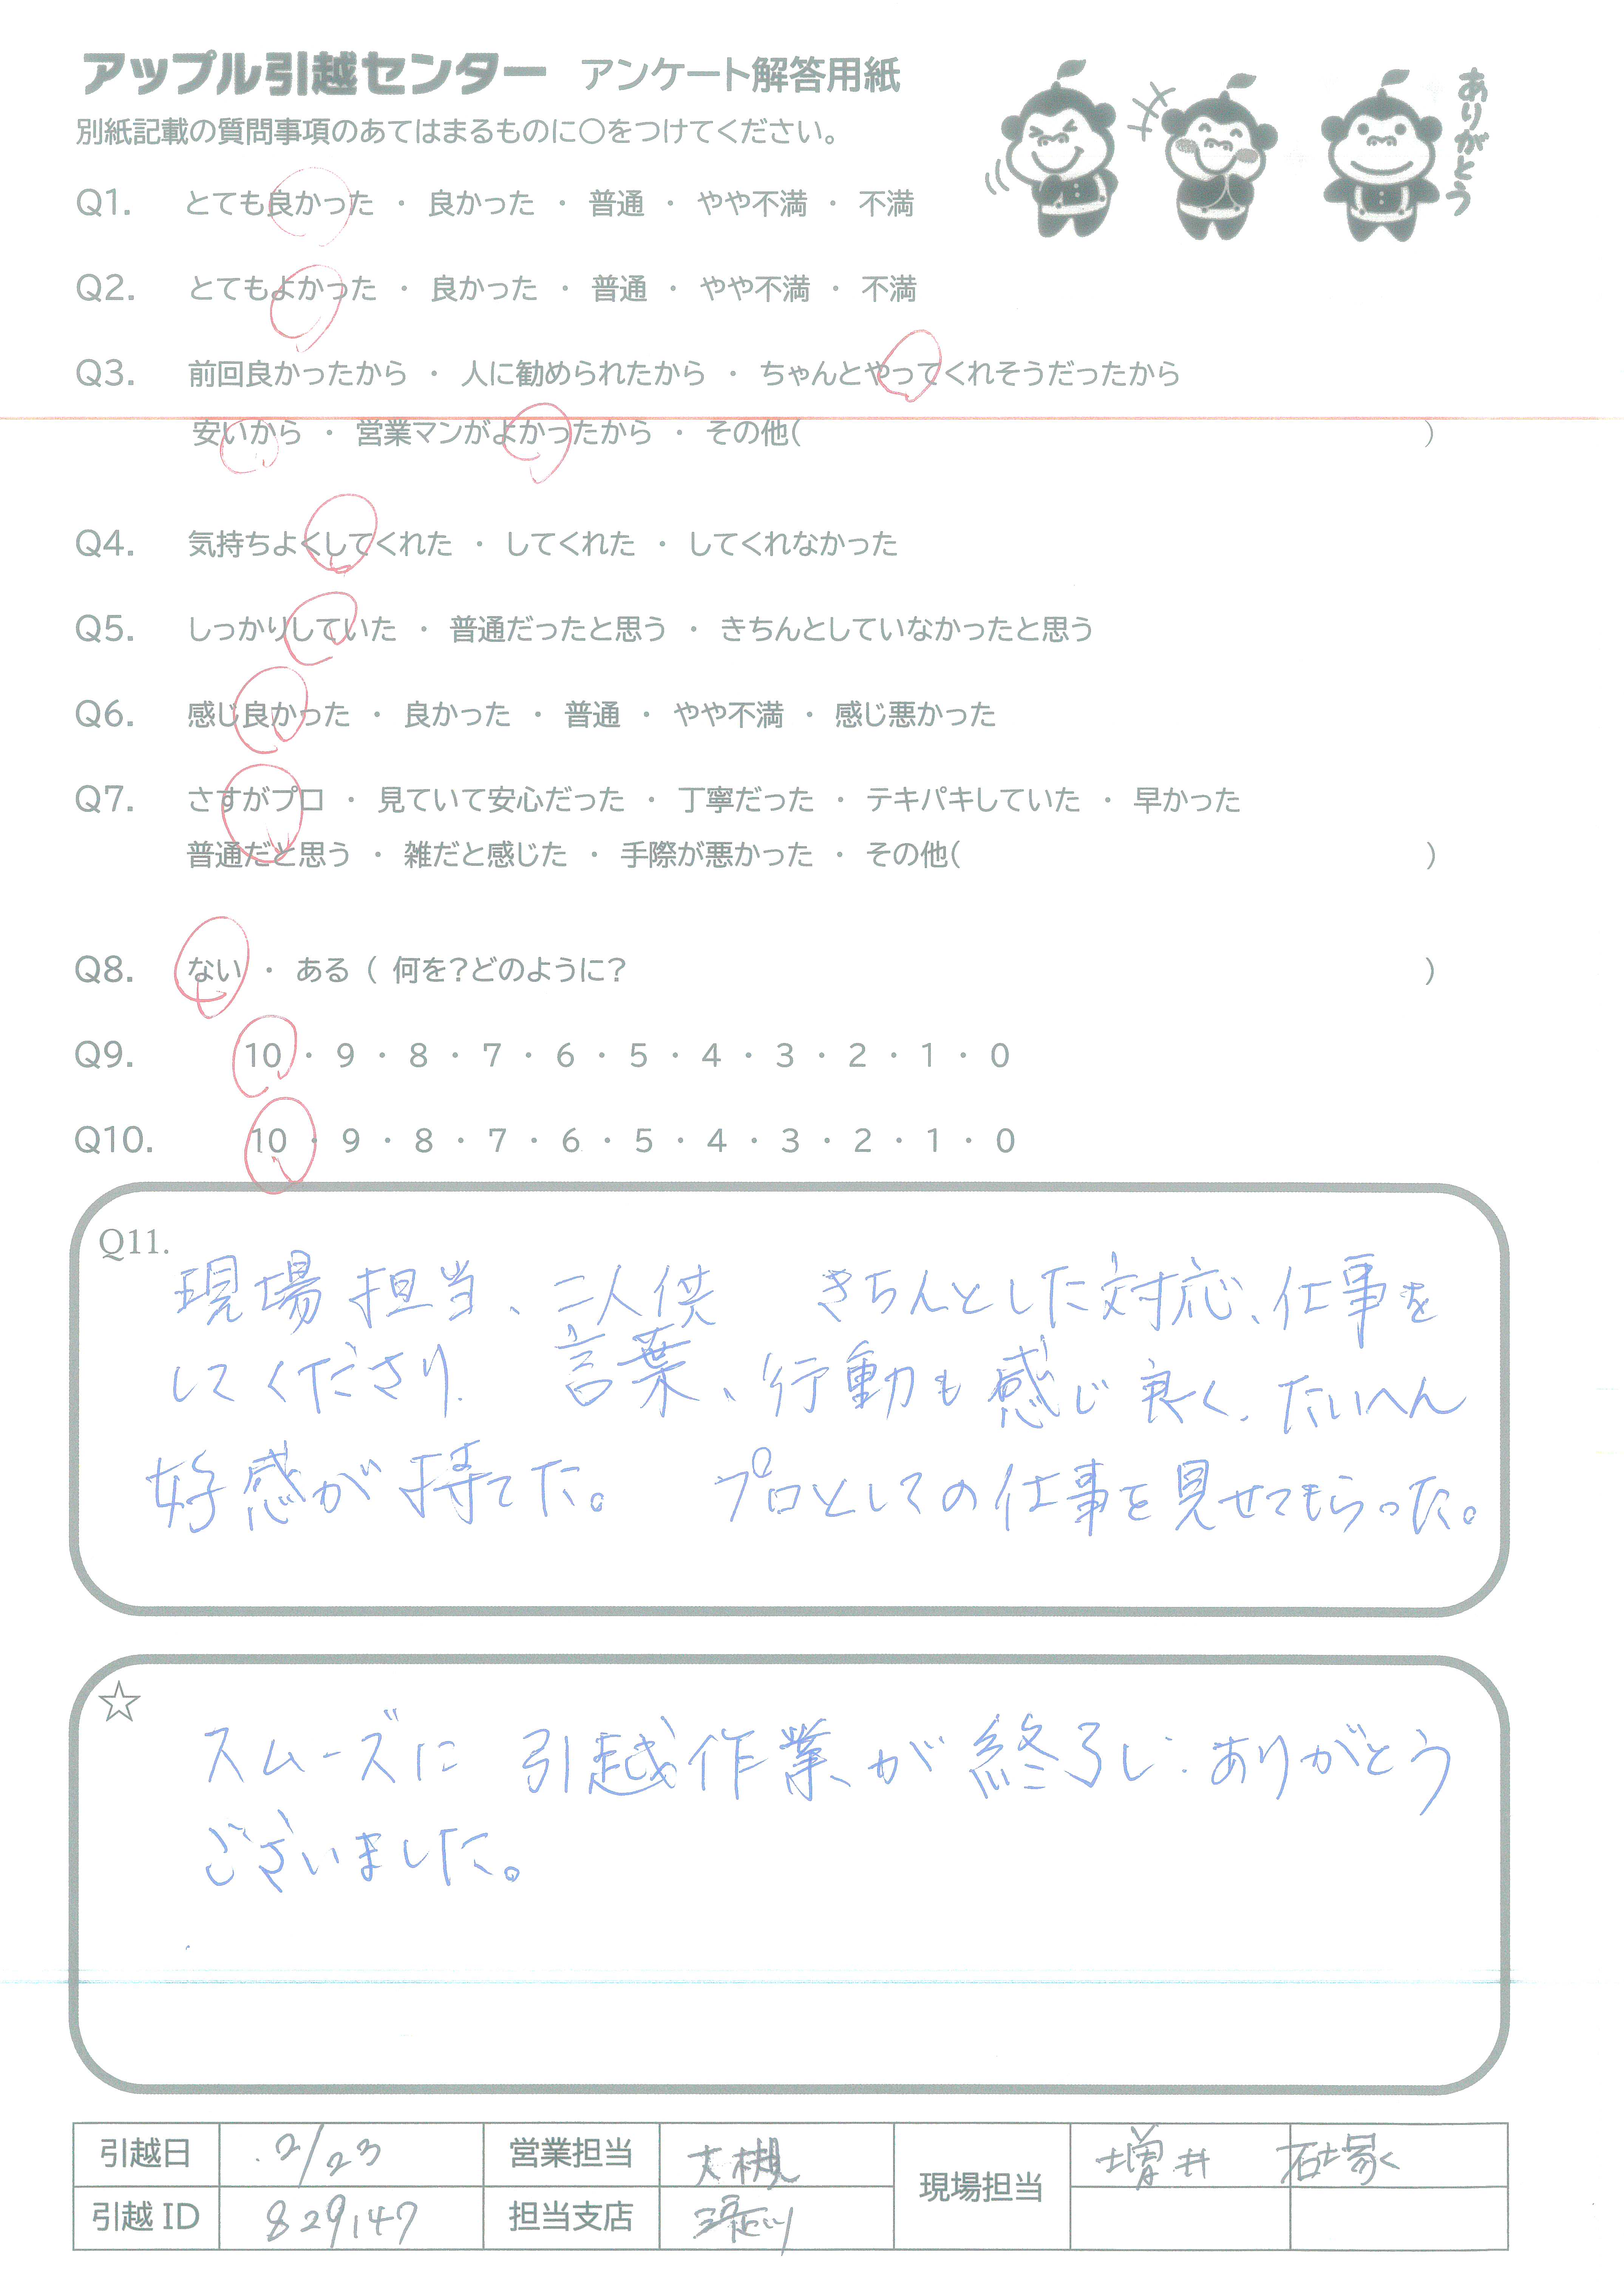 アップル引越センター アンケート解答用紙
ありがとう
別紙記載の質問事項のあてはまるものに○をつけてください。
Q1. とても良かった ・ 良かった ・ 普通 ・ やや不満 ・ 不満
Q2. とてもよかった ・ 良かった ・ 普通 ・ やや不満 ・ 不満
Q3. 前回良かったから ・ 人に勧められたから ・ ちゃんとやってくれそうだったから
安いから ・ 営業マンがよかったから ・ その他( )
Q4. 気持ちよくしてくれた ・ してくれた ・ してくれなかった
Q5. しっかりしていた ・ 普通だったと思う ・ きちんとしていなかったと思う
Q6. 感じ良かった ・ 良かった ・ 普通 ・ やや不満 ・ 感じ悪かった
Q7. さすがプロ ・ 見ていて安心だった ・ 丁寧だった ・ テキパキしていた ・ 早かった
普通だと思う ・ 雑だと感じた ・ 手際が悪かった ・ その他( )
Q8. ない ・ ある ( 何を?どのように? )
Q9. 10 ・ 9 ・ 8 ・ 7 ・ 6 ・ 5 ・ 4 ・ 3 ・ 2 ・ 1 ・ 0
Q10. 10 ・ 9 ・ 8 ・ 7 ・ 6 ・ 5 ・ 4 ・ 3 ・ 2 ・ 1 ・ 0
Q11.
現場担当、二人供 きちんとした対応、仕事を
してくださり、言葉、行動も感じ良く、たいへん
好感が持てた。 プロとしての仕事を見せてもらった。
☆
スムーズに 引越作業が終了し、ありがとう
ございました。
引越日 2/23 営業担当 大槻 現場担当 増井 石塚
引越 ID 829147 担当支店